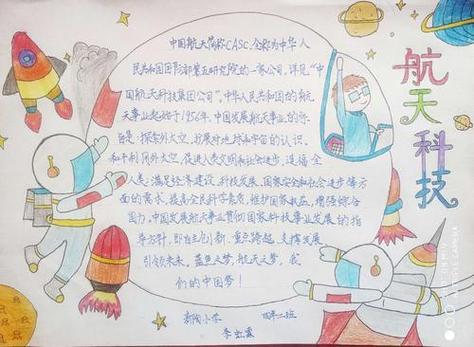 航天科技
中国航天简称CASC,全称为中华人
民共和国国防部第五研究院的一家公司。详见“中
国航天科技集团公司”。中华人民共和国的航
天事业起始于1956年。中国发展航天事业的宗
旨是:探索外太空,扩展对地球和宇宙的认识,
和平利用外太空,促进人类文明和社会进步,造福全
人类;满足经济建设、科技发展、国家安全和社会进步等方
面的需求,提高全民科学素质,维护国家权益,增强综合
国力。中国发展航天事业贯彻国家科技事业发展的指
导方针,即自主创新、重点跨越、支撑发展、
引领未来。蓝色之梦,航天之梦,我
们的中国梦!
小学 四年二班
李